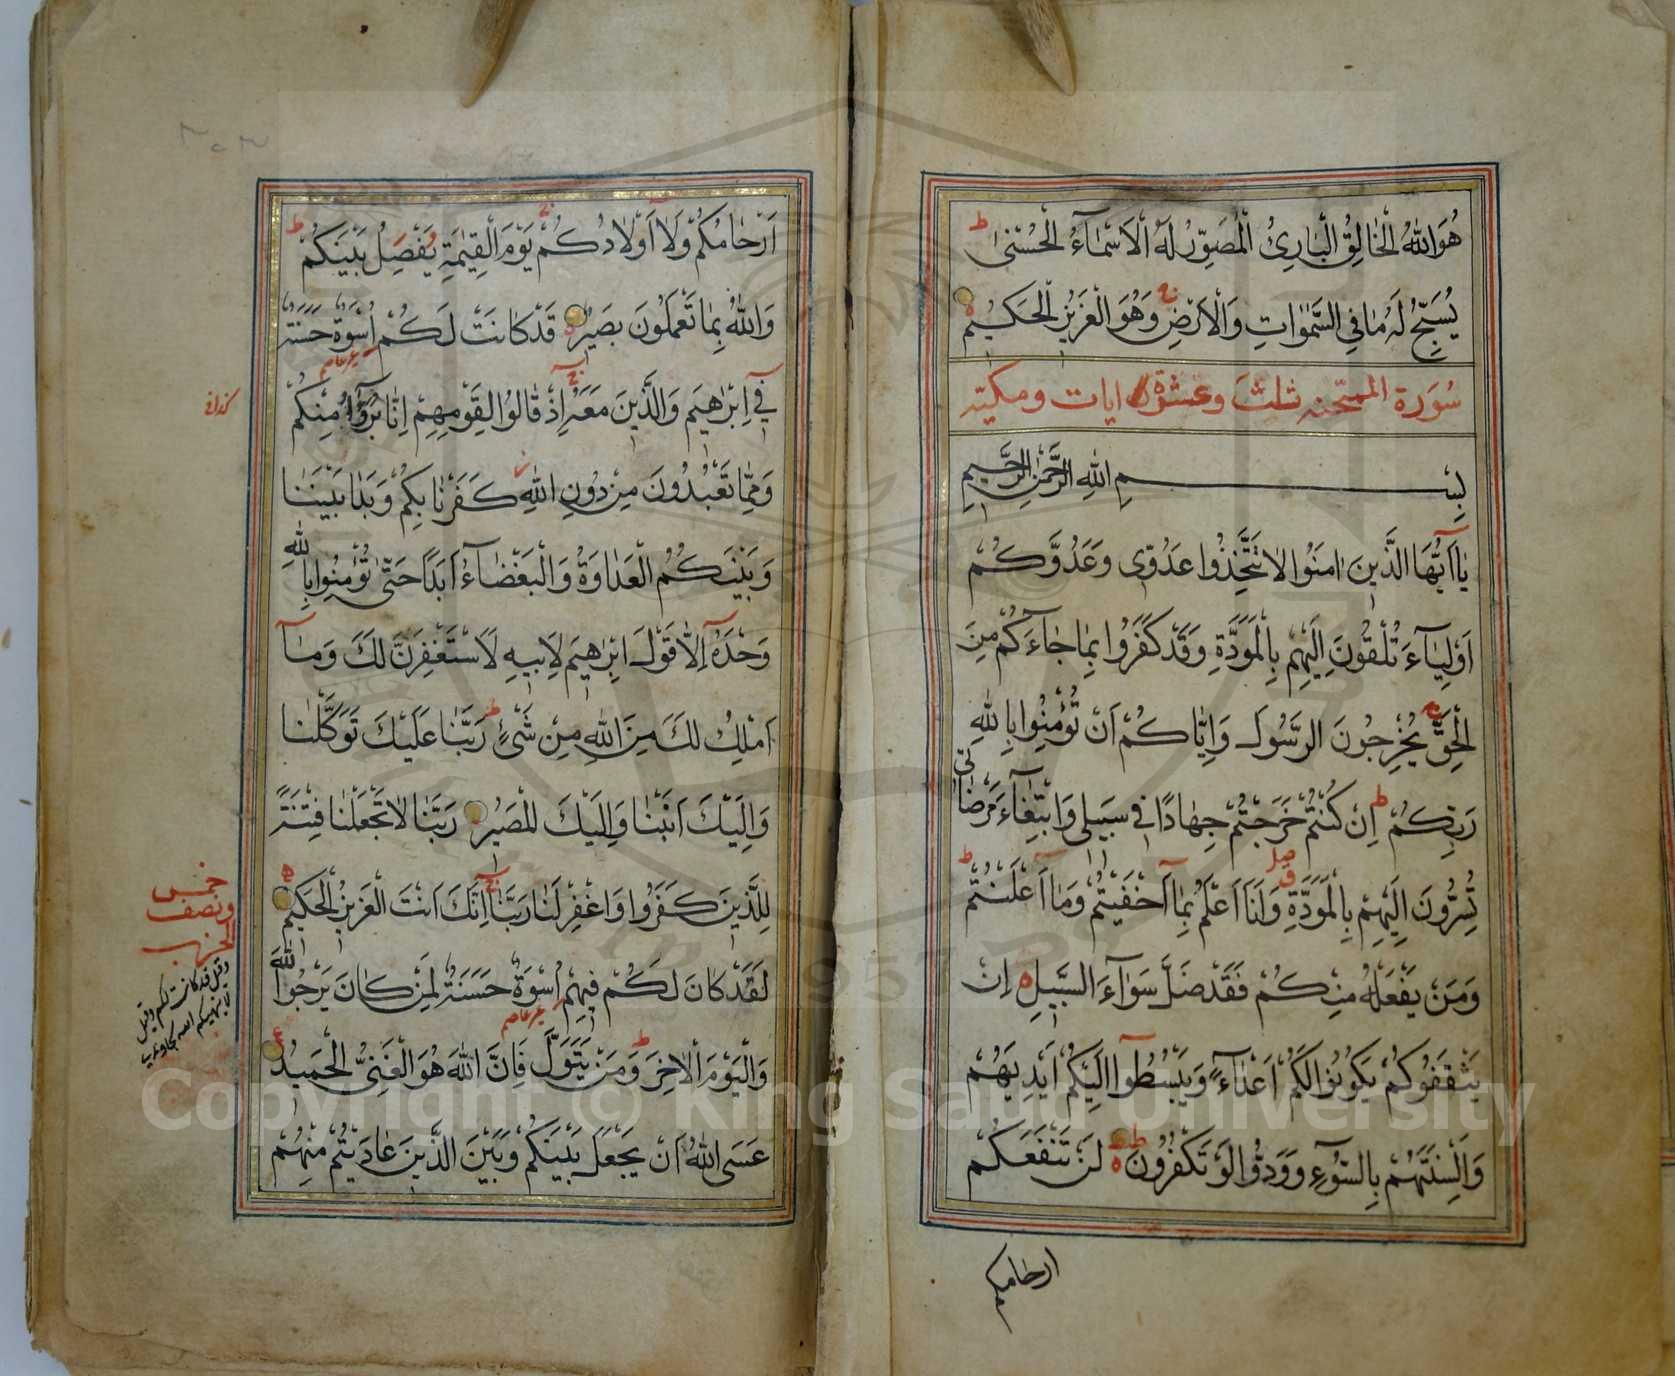 هُوَ اللّٰهُ الْخَالِقُ الْبَارِئُ الْمُصَوِّرُ لَهُ الْاَسْمَآءُ الْحُسْنٰى ط
يُسَبِّحُ لَهُ مَا فِي السَّمٰوَاتِ وَالْاَرْضِ ج وَهُوَ الْعَزِيْزُ الْحَكِيْمُ
سُورَة الممتحنه ثلث وعشرة ايات ومكيّه
بِسْمِ اللّٰهِ الرَّحْمٰنِ الرَّحِيْمِ
يَا اَيُّهَا الَّذِيْنَ اٰمَنُوْا لَا تَتَّخِذُوْا عَدُوِّى وَعَدُوَّكُمْ
اَوْلِيَآءَ تُلْقُوْنَ اِلَيْهِمْ بِالْمَوَدَّةِ وَقَدْ كَفَرُوْا بِمَا جَآءَكُمْ مِنَ
الْحَقِّ ج يُخْرِجُوْنَ الرَّسُوْلَ وَاِيَّاكُمْ اَنْ تُؤْمِنُوْا بِاللّٰهِ
رَبِّكُمْ ط اِنْ كُنْتُمْ خَرَجْتُمْ جِهَادًا فِي سَبِيْلِى وَابْتِغَآءَ مَرْضَاتِى
تُسِرُّوْنَ اِلَيْهِمْ بِالْمَوَدَّةِ وَاَنَا اَعْلَمُ بِمَآ اَخْفَيْتُمْ وَمَآ اَعْلَنْتُمْ ط
وَمَنْ يَفْعَلْهُ مِنْكُمْ فَقَدْ ضَلَّ سَوَآءَ السَّبِيْلِ اِنْ
يَثْقَفُوْكُمْ يَكُوْنُوْا لَكُمْ اَعْدَآءً وَيَبْسُطُوْآ اِلَيْكُمْ اَيْدِيَهُمْ
وَاَلْسِنَتَهُمْ بِالسُّوْٓءِ وَوَدُّوْا لَوْ تَكْفُرُوْنَ ط لَنْ تَنْفَعَكُمْ
ارحامكم
اَرْحَامُكُمْ وَلَآ اَوْلَادُكُمْ ج يَوْمَ الْقِيٰمَةِ يَفْصِلُ بَيْنَكُمْ ط
وَاللّٰهُ بِمَا تَعْمَلُوْنَ بَصِيْرٌ قَدْ كَانَتْ لَكُمْ اُسْوَةٌ حَسَنَةٌ
فِيْ اِبْرٰهِيْمَ وَالَّذِيْنَ مَعَهٗ اِذْ قَالُوْا لِقَوْمِهِمْ اِنَّا بُرَءٰٓؤُا مِنْكُمْ
وَمِمَّا تَعْبُدُوْنَ مِنْ دُوْنِ اللّٰهِ ز كَفَرْنَا بِكُمْ وَبَدَا بَيْنَنَا
وَبَيْنَكُمُ الْعَدَاوَةُ وَالْبَغْضَآءُ اَبَدًا حَتّٰى تُؤْمِنُوْا بِاللّٰهِ
وَحْدَهٗٓ اِلَّا قَوْلَ اِبْرٰهِيْمَ لِاَبِيْهِ لَاَسْتَغْفِرَنَّ لَكَ وَمَآ
اَمْلِكُ لَكَ مِنَ اللّٰهِ مِنْ شَيْءٍ ط رَبَّنَا عَلَيْكَ تَوَكَّلْنَا
وَاِلَيْكَ اَنَبْنَا وَاِلَيْكَ الْمَصِيْرُ رَبَّنَا لَا تَجْعَلْنَا فِتْنَةً
لِلَّذِيْنَ كَفَرُوْا وَاغْفِرْ لَنَا رَبَّنَا ج اِنَّكَ اَنْتَ الْعَزِيْزُ الْحَكِيْمُ
لَقَدْ كَانَ لَكُمْ فِيْهِمْ اُسْوَةٌ حَسَنَةٌ لِمَنْ كَانَ يَرْجُوا اللّٰهَ
وَالْيَوْمَ الْاٰخِرَ ط وَمَنْ يَتَوَلَّ فَاِنَّ اللّٰهَ هُوَ الْغَنِيُّ الْحَمِيْدُ
عَسَى اللّٰهُ اَنْ يَجْعَلَ بَيْنَكُمْ وَبَيْنَ الَّذِيْنَ عَادَيْتُمْ مِنْهُمْ
خمس
ونصف
الحزب
وقيل قد كانت لكم وقيل
Copyright © King Saud University